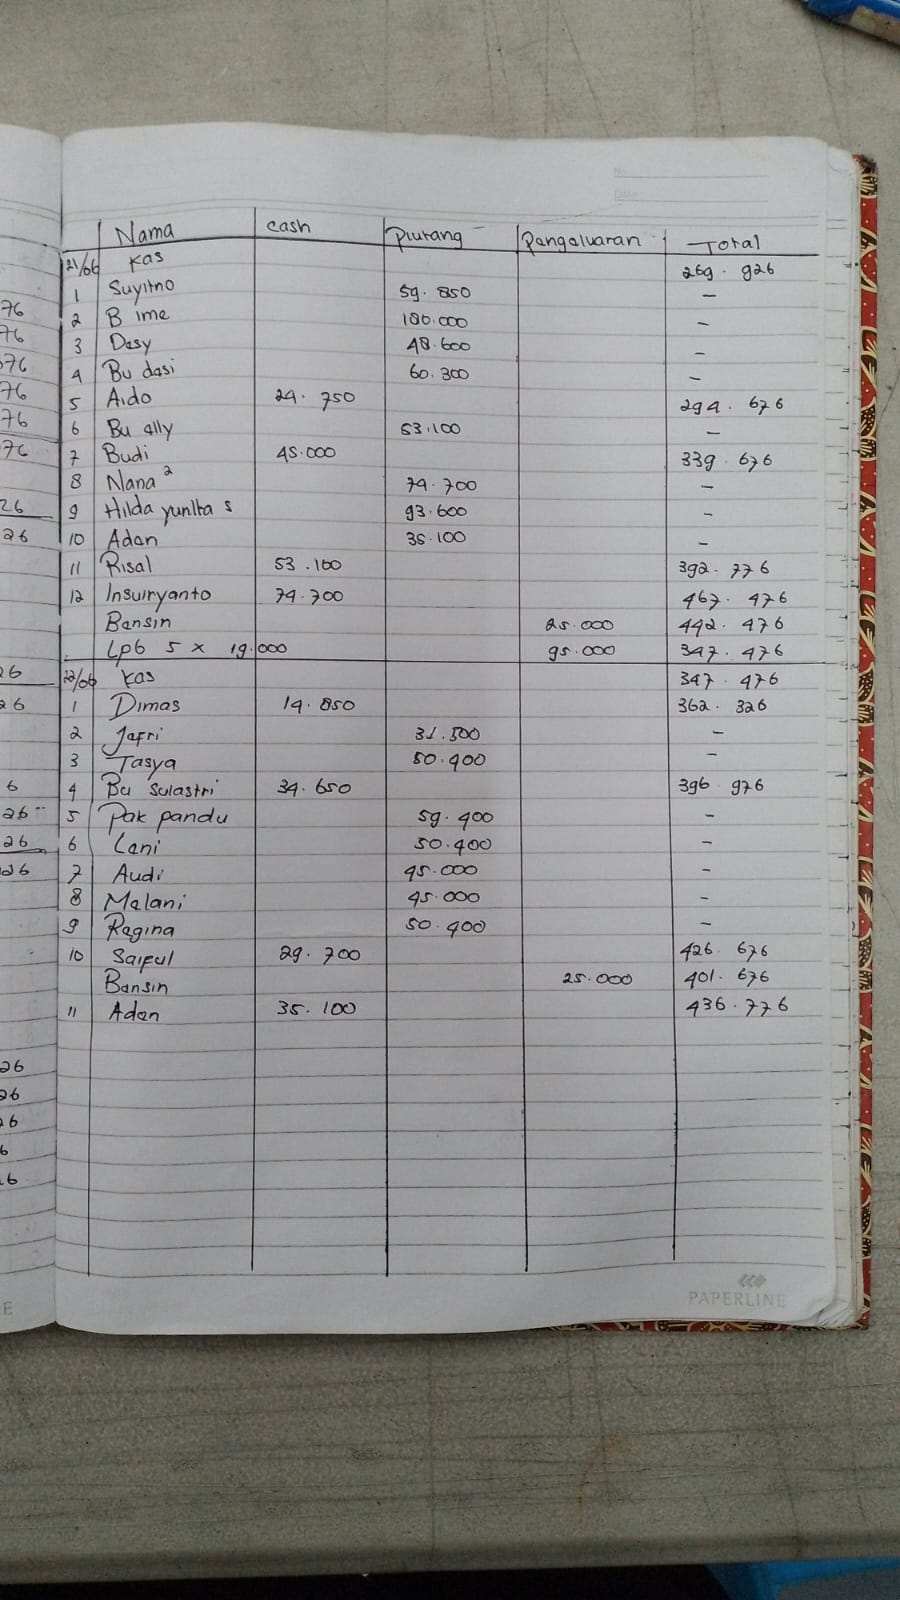 No
Date
Nama cash Piutang Pengeluaran Total
21/06 Kas 269.926
1 Suyitno 59.850 -
2 B ime 180.000 -
3 Desy 48.600 -
4 Bu desi 60.300 -
5 Aldo 24.750 294.676
6 Bu elly 53.100 -
7 Budi 45.000 339.676
8 Nana² 74.700 -
9 Hilda yunita s 93.600 -
10 Aden 35.100 -
11 Risal 53.100 392.776
12 Insuiryanto 74.700 467.476
Bensin 25.000 442.476
LPG 5 x 19.000 95.000 347.476
22/06 Kas 347.476
1 Dimas 14.850 362.326
2 Jefri 31.500 -
3 Tasya 50.400 -
4 Bu Sulastri 34.650 396.976
5 Pak pandu 59.400 -
6 Leni 50.400 -
7 Audi 45.000 -
8 Melani 45.000 -
9 Regina 50.400 -
10 Saiful 29.700 426.676
Bensin 25.000 401.676
11 Aden 35.100 436.776
PAPERLINE